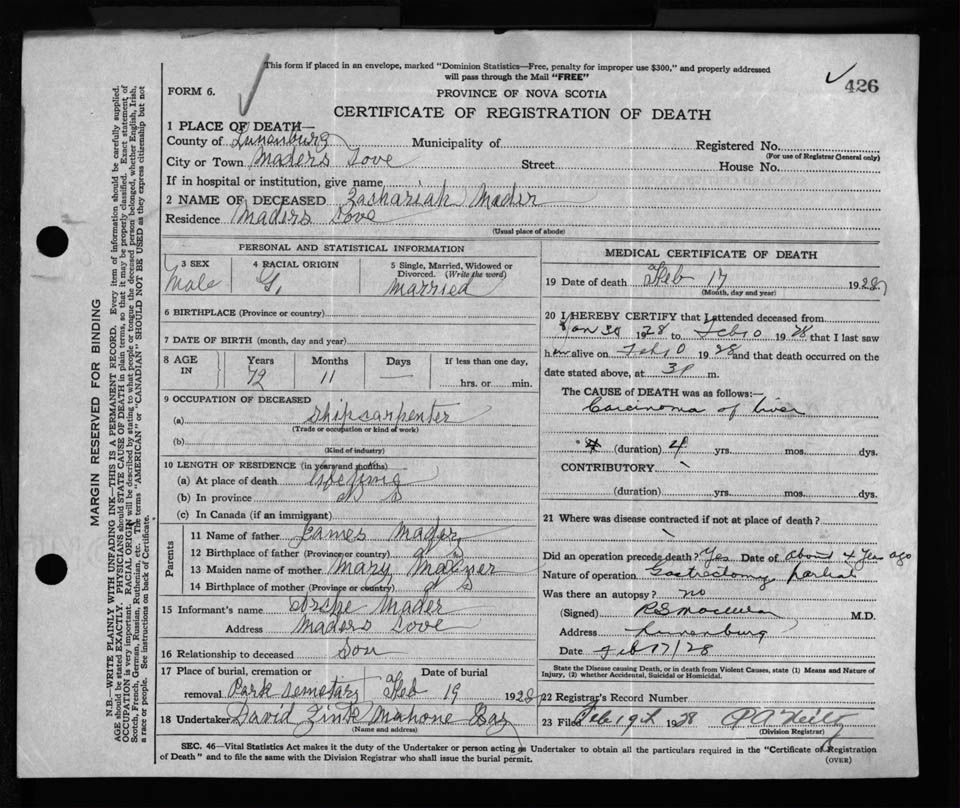 This form if placed in an envelope, marked "Dominion Statistics—Free, penalty for improper use $300," and properly addressed
will pass through the Mail "FREE"
426
FORM 6.
PROVINCE OF NOVA SCOTIA
CERTIFICATE OF REGISTRATION OF DEATH
1 PLACE OF DEATH—
County of Lunenburg Municipality of Registered No.
(For use of Registrar General only)
City or Town Maders Cove Street House No.
If in hospital or institution, give name
2 NAME OF DECEASED Zachariah Mader
Residence Maders Cove
(Usual place of abode)
PERSONAL AND STATISTICAL INFORMATION
3 SEX 4 RACIAL ORIGIN 5 Single, Married, Widowed or Divorced. (Write the word)
Male G. Married
6 BIRTHPLACE (Province or country)
7 DATE OF BIRTH (month, day and year)
8 AGE IN Years Months Days If less than one day,
72 11 — hrs. or min.
9 OCCUPATION OF DECEASED
(a) Shipcarpenter
(Trade or occupation or kind of work)
(b)
(Kind of industry)
10 LENGTH OF RESIDENCE (in years and months)
(a) At place of death
(b) In province
(c) In Canada (if an immigrant)
Parents
11 Name of father James Mader
12 Birthplace of father (Province or country)
13 Maiden name of mother Mary
14 Birthplace of mother (Province or country)
15 Informant's name Mader
Address Maders Cove
16 Relationship to deceased Son
17 Place of burial, cremation or removal Date of burial
Park Cemetary Feb 19 1928
18 Undertaker David Zink Mahone Bay
(Name and address)
MEDICAL CERTIFICATE OF DEATH
19 Date of death Feb 17 1928
(Month, day and year)
20 I HEREBY CERTIFY that I attended deceased from
Jan 30 1928 to Feb 10 1928 that I last saw
him alive on Feb 10 1928 and that death occurred on the
date stated above, at 3 P m.
The CAUSE of DEATH was as follows:—
Carcinoma of Liver
(duration) 4 yrs. mos. dys.
CONTRIBUTORY
(duration) yrs. mos. dys.
21 Where was disease contracted if not at place of death?
Did an operation precede death? Yes Date of About 4 Years ago
Nature of operation Gastrectomy partial
Was there an autopsy? no
(Signed) M.D.
Address Lunenburg
Date Feb 17/28
State the Disease causing Death, or in death from Violent Causes, state (1) Means and Nature of Injury, (2) whether Accidental, Suicidal or Homicidal.
22 Registrar's Record Number
23 Filed Feb 19th 1928
(Division Registrar)
SEC. 46—Vital Statistics Act makes it the duty of the Undertaker or person acting as Undertaker to obtain all the particulars required in the "Certificate of Registration
of Death" and to file the same with the Division Registrar who shall issue the burial permit.
(OVER)
MARGIN RESERVED FOR BINDING
N.B.—WRITE PLAINLY WITH UNFADING INK—THIS IS A PERMANENT RECORD. Every item of information should be carefully supplied.
AGE should be stated EXACTLY. PHYSICIANS should STATE CAUSE OF DEATH in plain terms, so that it may be properly classified. Exact statement of
OCCUPATION is very important. RACIAL ORIGIN will be described by stating to what people or tongue the deceased person belonged, whether English, Irish,
Scotch, French, German, Russian, Ruthenian, etc. The terms "AMERICAN" or "CANADIAN" SHOULD NOT BE USED as they express citizenship but not
a race or people. See instructions on back of Certificate.